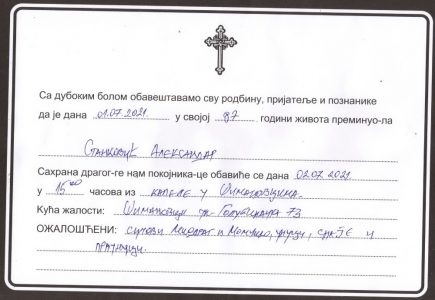 Са дубоким болом обавештавамо сву родбину, пријатеље и познанике
да је дана 01.07.2021. у својој 87 години живота преминуо-ла
Станковић Александар
Сахрана драгог-ге нам покојника-це обавиће се дана 02.07.2021
у 15⁰⁰ часова из капеле у Шимановцима.
Кућа жалости: Шимановци 73
ОЖАЛОШЋЕНИ: синови Миодраг и Момчило, унуци, снаје и